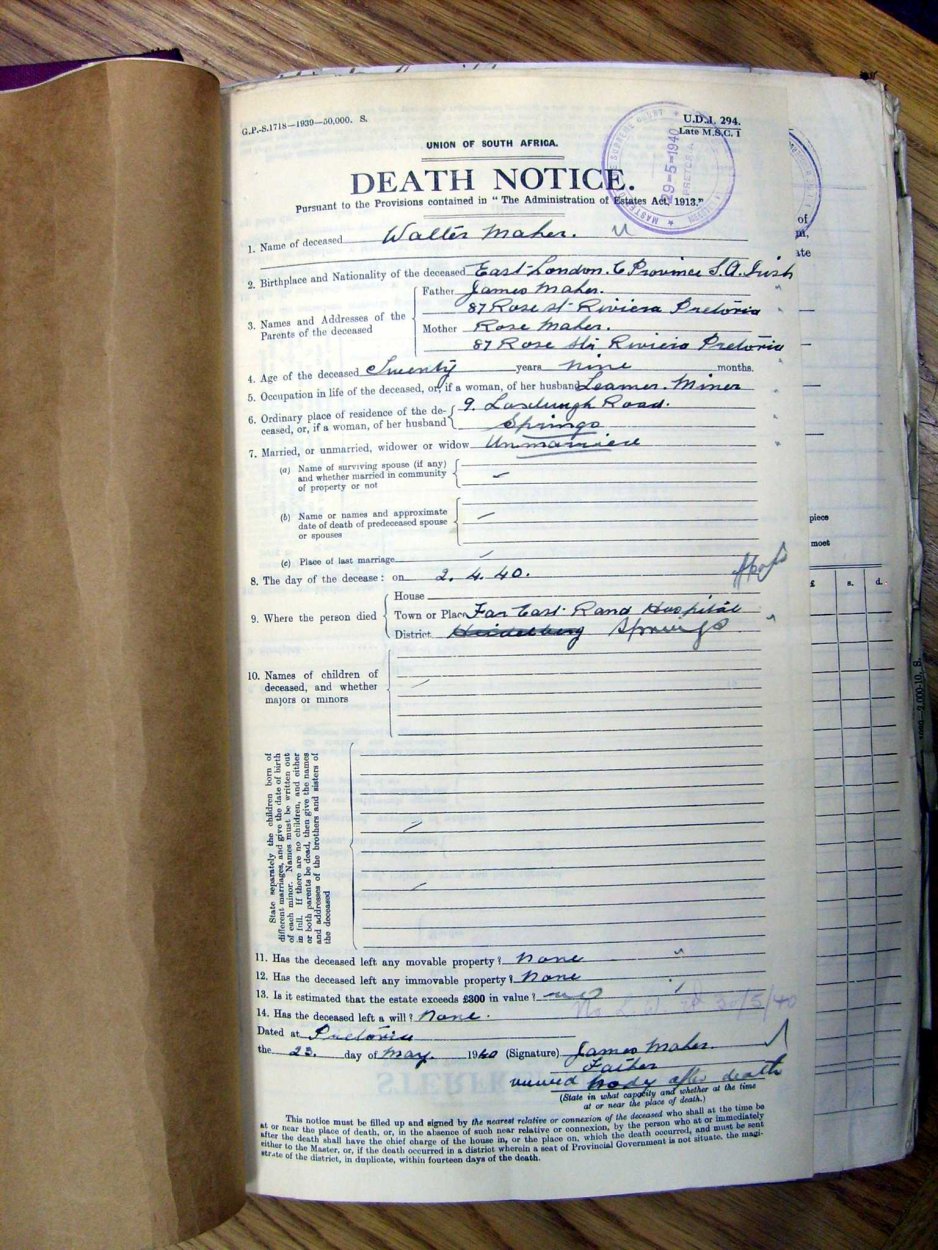 G.P.-S.1718—1939—50,000. S.
U.D.J. 294.
Late M.S.C. 1
UNION OF SOUTH AFRICA.
DEATH NOTICE.
Pursuant to the Provisions contained in "The Administration of Estates Act, 1913."
MASTER SUPREME COURT
29-5-1940
PRETORIA
1. Name of deceased Walter Maher.
2. Birthplace and Nationality of the deceased East-London. C Province S.A. Irish
3. Names and Addresses of the Parents of the deceased
Father James Maher.
87 Rose St Riviera Pretoria
Mother Rose Maher.
87 Rose Str Riviera Pretoria
4. Age of the deceased Twenty years nine months.
5. Occupation in life of the deceased, or, if a woman, of her husband Learner. Miner
6. Ordinary place of residence of the deceased, or, if a woman, of her husband
9. Road.
Springs
7. Married, or unmarried, widower or widow Unmarried
(a) Name of surviving spouse (if any)
and whether married in community
of property or not
(b) Name or names and approximate
date of death of predeceased spouse
or spouses
(c) Place of last marriage
8. The day of the decease: on 2. 4. 40.
9. Where the person died
House
Town or Place Far East Rand Hospital
District Heidelberg Springs
10. Names of children of
deceased, and whether
majors or minors
State separately the children born of
different marriages, and give the date of birth
of each minor. Names must be written out
in full. If there are no children, and either
or both parents be dead, then give the names
and addresses of the brothers and sisters of
the deceased
11. Has the deceased left any movable property? none
12. Has the deceased left any immovable property? None
13. Is it estimated that the estate exceeds £300 in value? no
14. Has the deceased left a will? None.
30/5/40
Dated at Pretoria
the 23. day of May. 1940 (Signature) James Maher.
Father
viewed body after death
(State in what capacity and whether at the time
at or near the place of death.)
This notice must be filled up and signed by the nearest relative or connexion of the deceased who shall at the time be
at or near the place of death, or, in the absence of such near relative or connexion, by the person who at or immediately
after the death shall have the chief charge of the house in, or the place on, which the death occurred, and must be sent
either to the Master, or, if the death occurred in a district wherein a seat of Provincial Government is not situate, the magi-
strate of the district, in duplicate, within fourteen days of the death.
of
piece
moet
£ s. d.